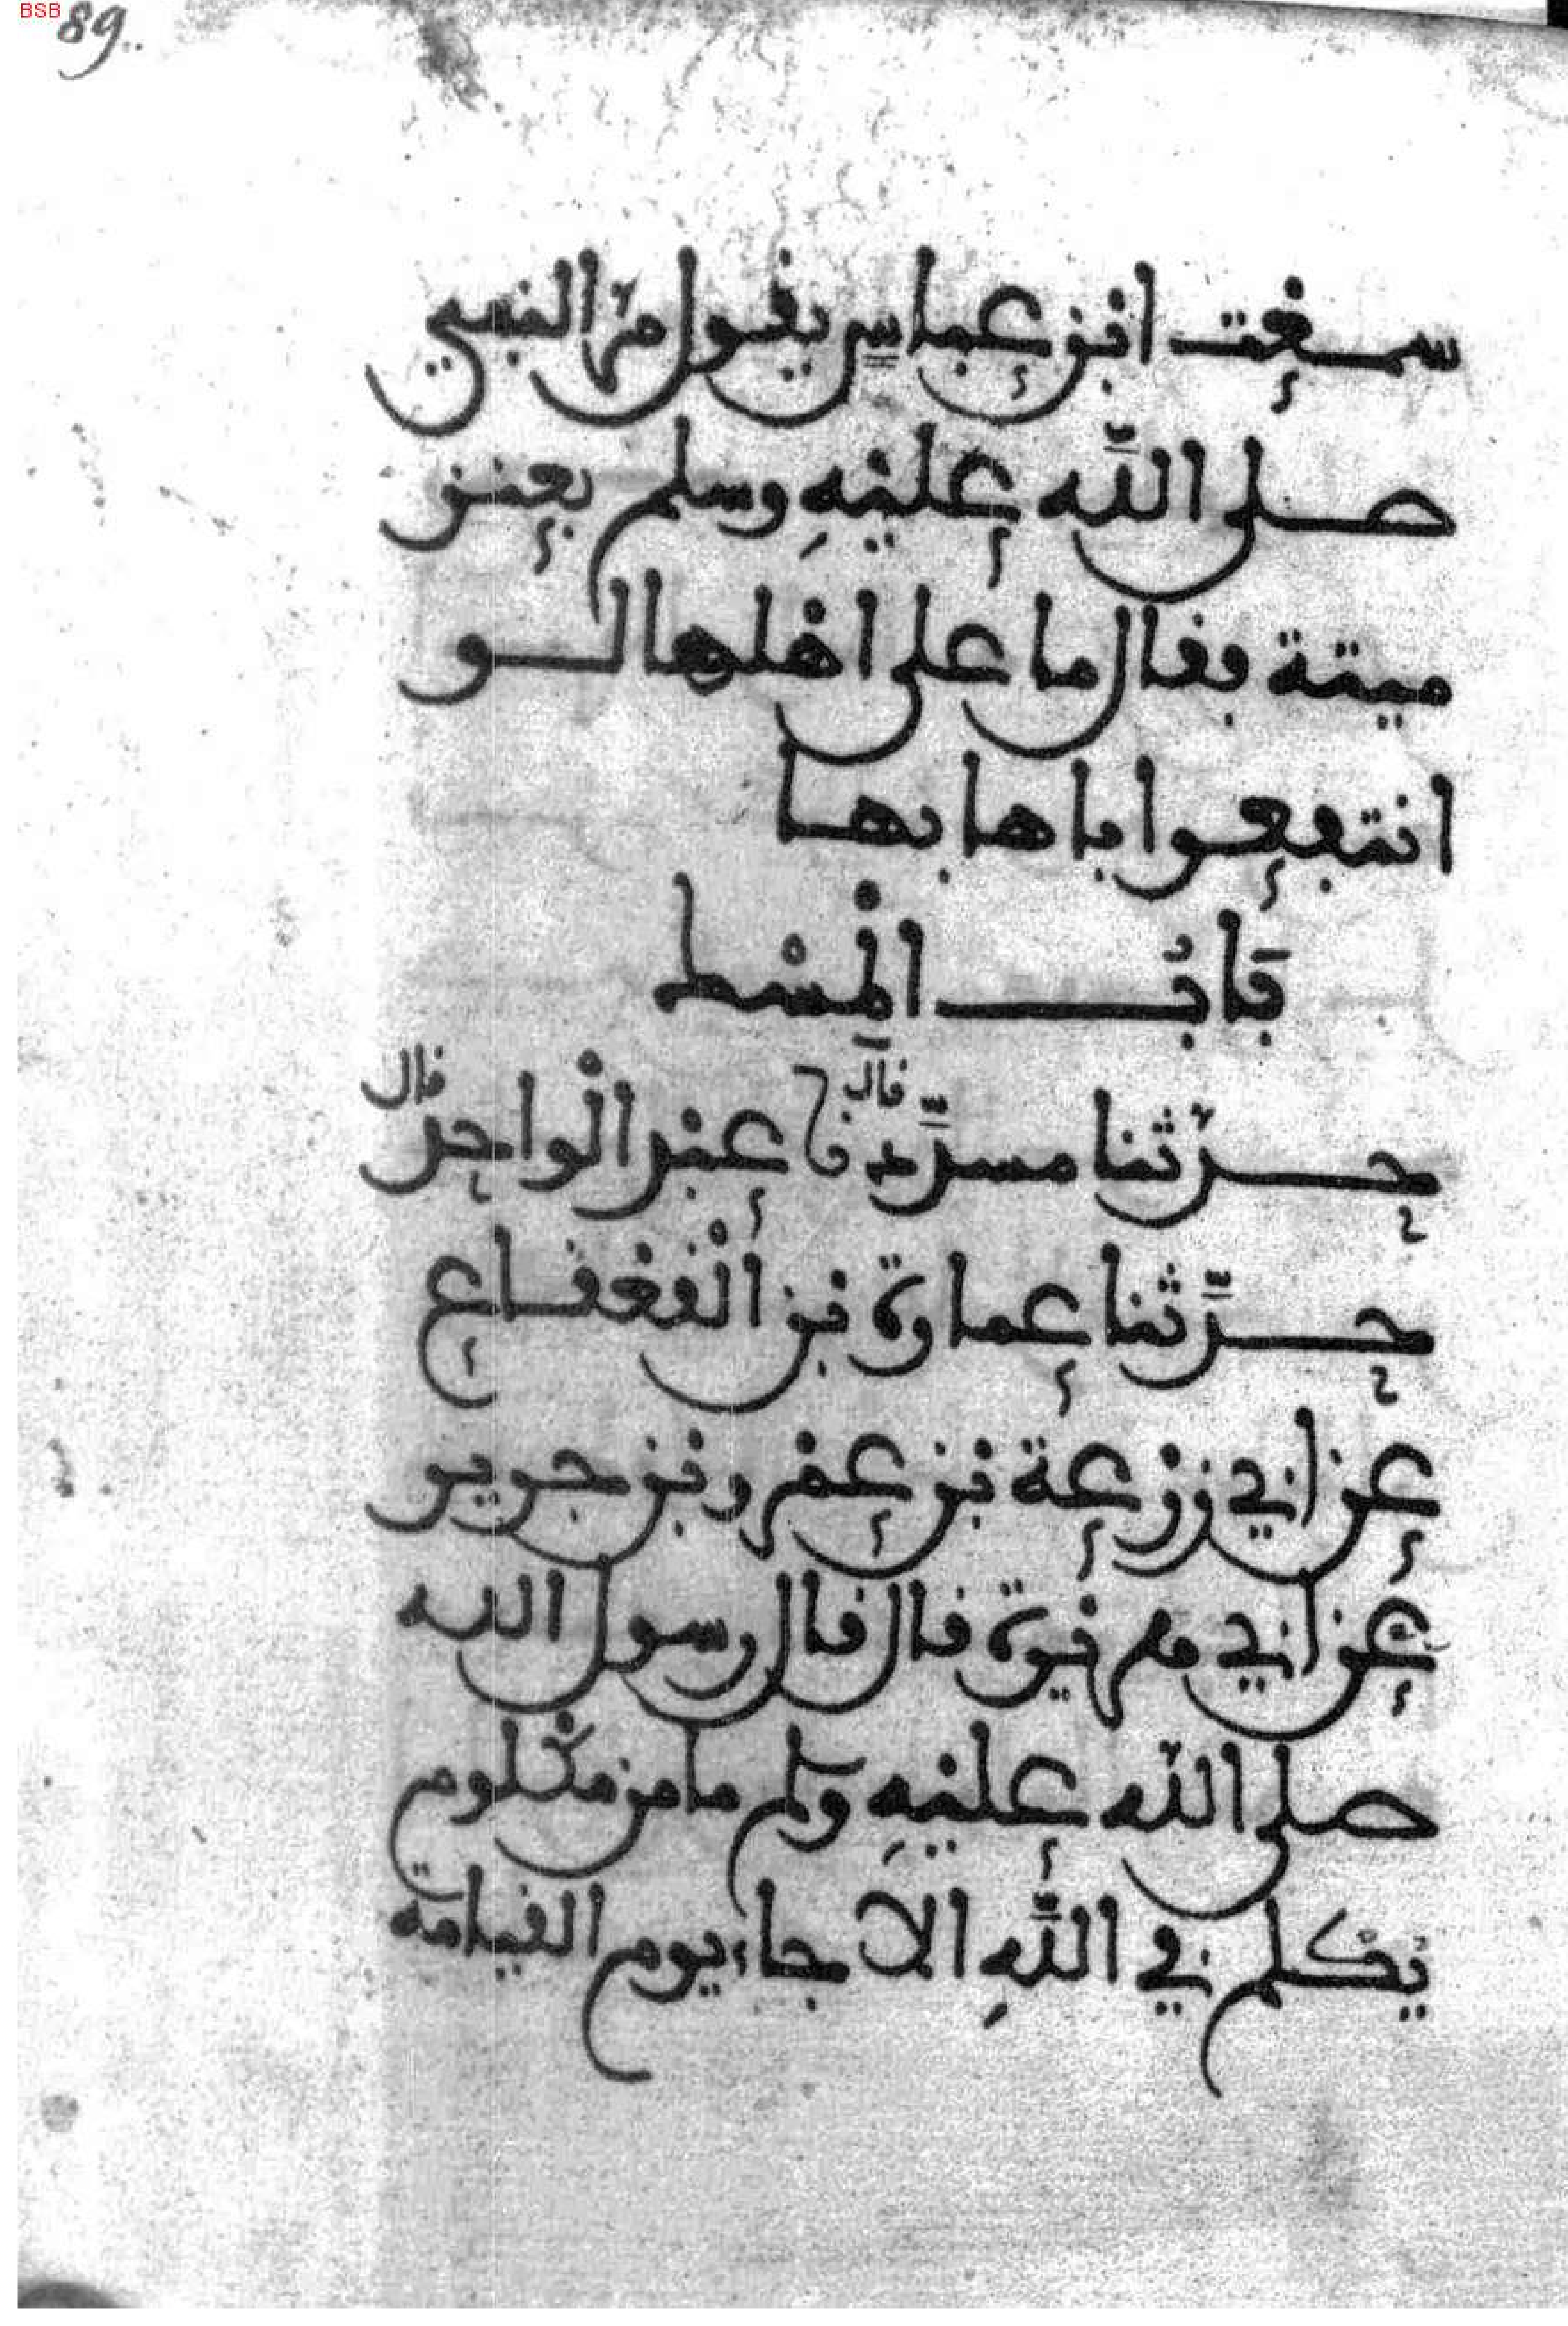 BSB
89
سمعت ابن عباس يقول مر النبي
صلى اللّه عليْهِ وسلم بعنز
ميتة فقال ما على اهْلها لو
انتفعوا باهابها
بَابُ الْمسْط
حدّثنا مسدَّد قال نا عبْد الْواحد قال
حدّثنا عمارة بن الْقعْقاع
عن ابي زرْعة بن عمْرو بن جرير
عن ابي هريْرة قال قال رسول الله
صلى اللّه عليْهِ وسلم ما من مكْلوم
يُكلم في اللّهِ الا جاء يوم القيامة